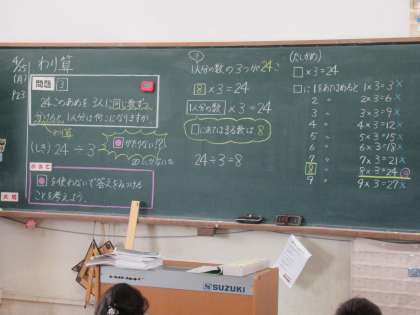 4/25
(月)
P23
わり算
問題 3
24このあめを 3人に同じ数ずつ
分けると、1人分は何こになりますか。
わり算
(しき) 24÷3
めあて
を使わないで答えをみつける
ことを考えよう。
1人分の数の3つ分が24こ
8×3=24
1人分の数×3=24
□にあてはまる数は 8
24÷3=8
(たしかめ)
□×3=24
□に1をあてはめると 1×3=3×
2 〃 2×3=6×
3 〃 3×3=9×
4 〃 4×3=12×
5 〃 5×3=15×
6 〃 6×3=18×
7 〃 7×3=21×
8 〃 8×3=24
9 〃 9×3=27×
SUZUKI